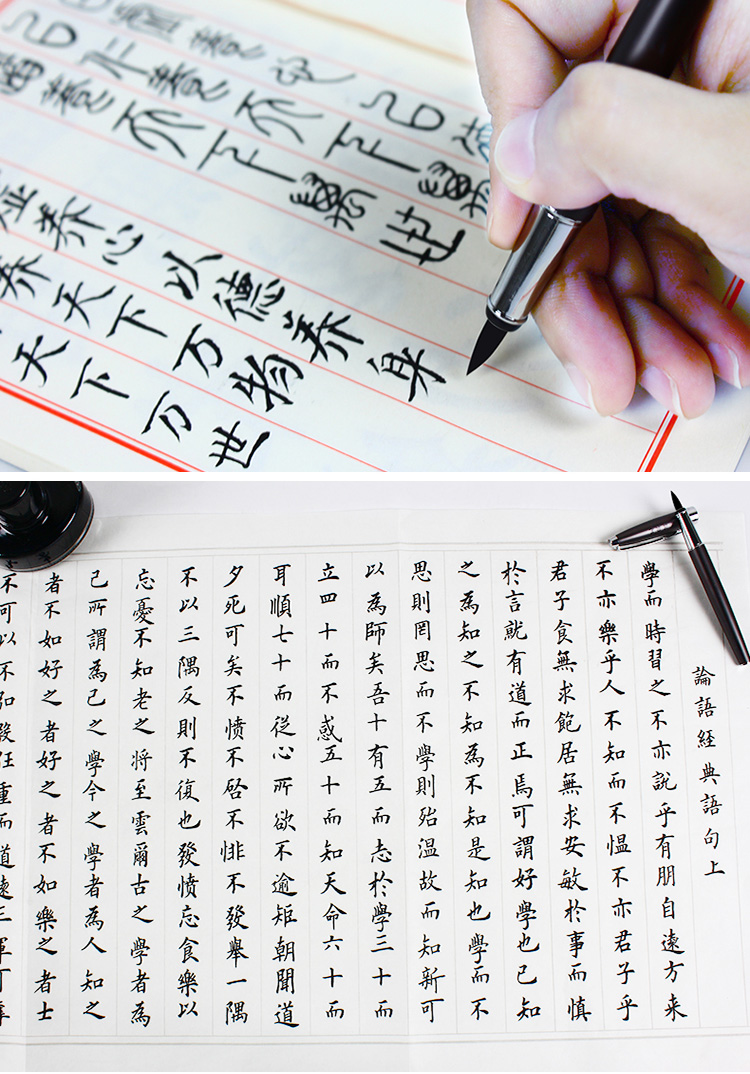 心以德养身
养天下万物
天下万世
論語經典語句上
學而時習之不亦説乎有朋自遠方来
不亦樂乎人不知而不愠不亦君子乎
君子食無求飽居無求安敏於事而慎
於言就有道而正焉可謂好學也已知
之為知之不知為不知是知也學而不
思則罔思而不學則殆温故而知新可
以為師矣吾十有五而志於學三十而
立四十而不惑五十而知天命六十而
耳順七十而従心所欲不逾矩朝聞道
夕死可矣不愤不啓不悱不發舉一隅
不以三隅反則不復也發愤忘食樂以
忘憂不知老之將至雲爾古之學者為
己所謂為己之學今之學者為人知之
者不如好之者好之者不如樂之者士
不可以不弘毅任重而道遠三軍可奪